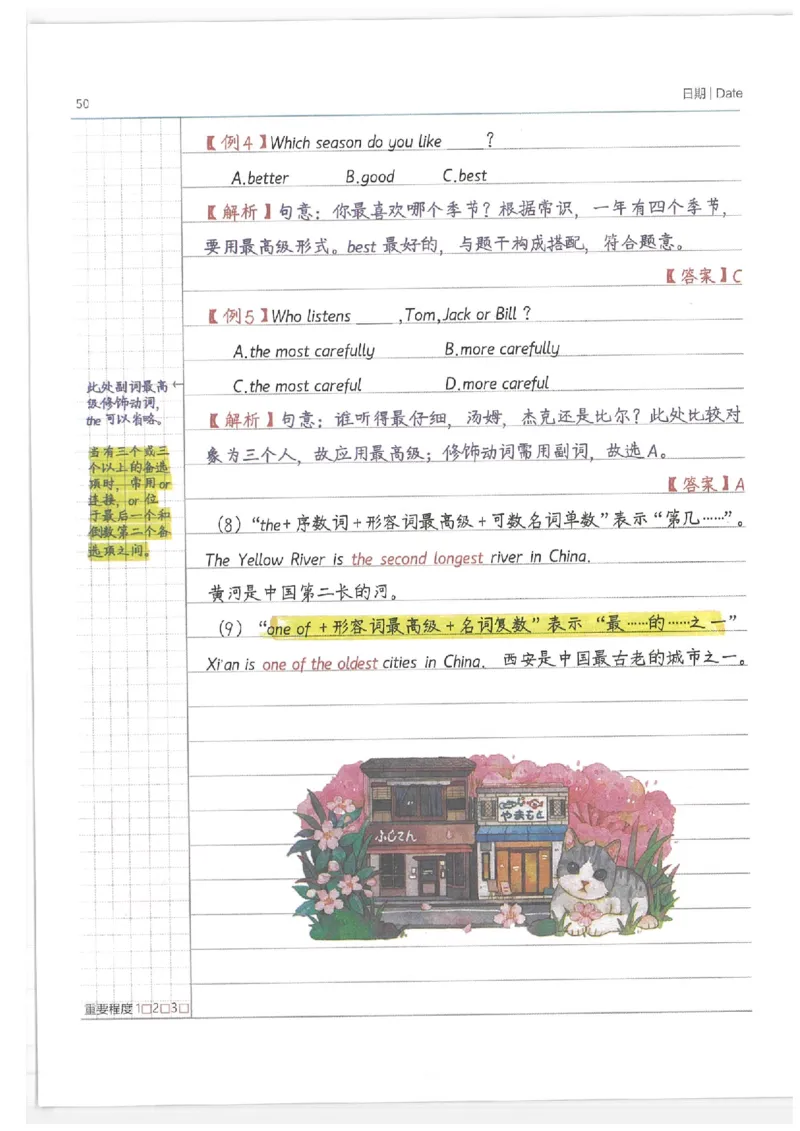 50
日期 | Date
【例4】Which season do you like ____?
A.better B.good C.best
【解析】句意：你最喜欢哪个季节？根据常识，一年有四个季节，
要用最高级形式。best 最好的，与题干构成搭配，符合题意。
【答案】C
【例5】Who listens ____,Tom,Jack or Bill？
A.the most carefully B.more carefully
C.the most careful D.more careful
此处副词最高←
级修饰动词，
the 可以省略。
【解析】句意：谁听得最仔细，汤姆，杰克还是比尔？此处比较对
象为三个人，故应用最高级；修饰动词需用副词，故选A。
【答案】A
当有三个或三
个以上的备选
项时，常用or
连接，or 位
于最后一个和
倒数第二个备
选项之间。
（8）“the+序数词+形容词最高级+可数名词单数”表示“第几……”。
The Yellow River is the second longest river in China.
黄河是中国第二长的河。
（9）“one of +形容词最高级+名词复数”表示“最……的……之一”
Xi'an is one of the oldest cities in China. 西安是中国最古老的城市之一。
ふじてん
やまもと
重要程度 1□2□3□